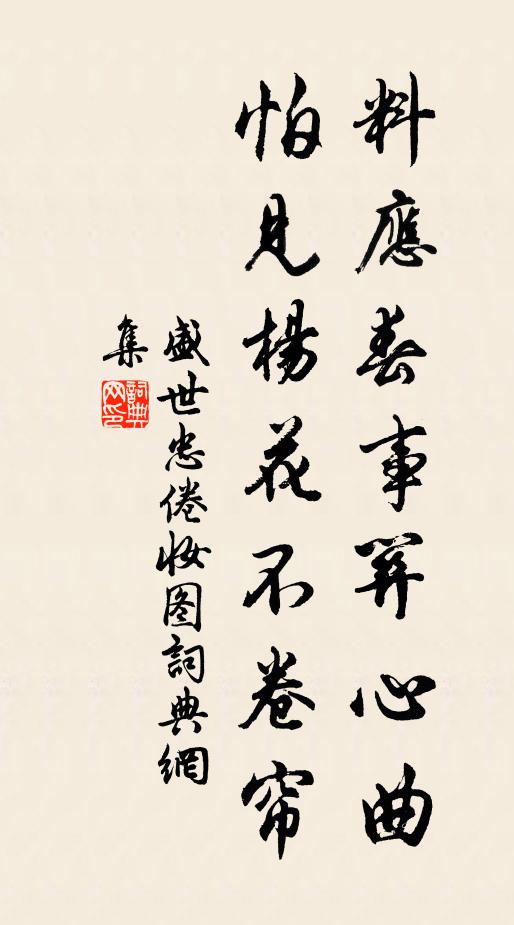 料應春事關心曲
怕見楊花不卷帘
盛世忠倦妆图詞典網
集
詞典
网印